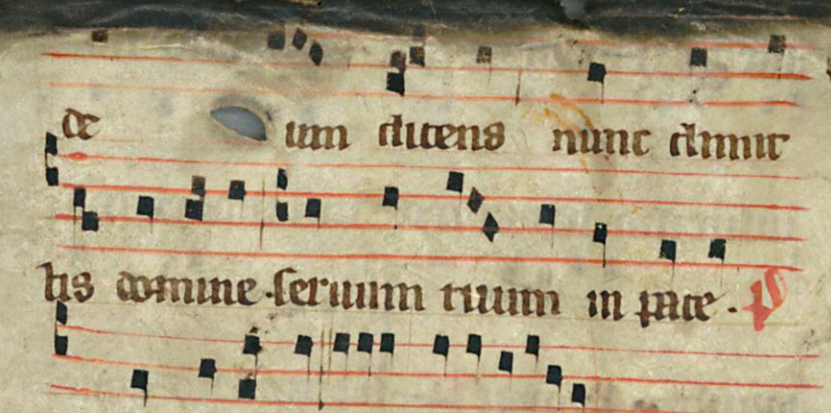 de um dicens nunc dimit
tis domine seruum tuum in pace . p